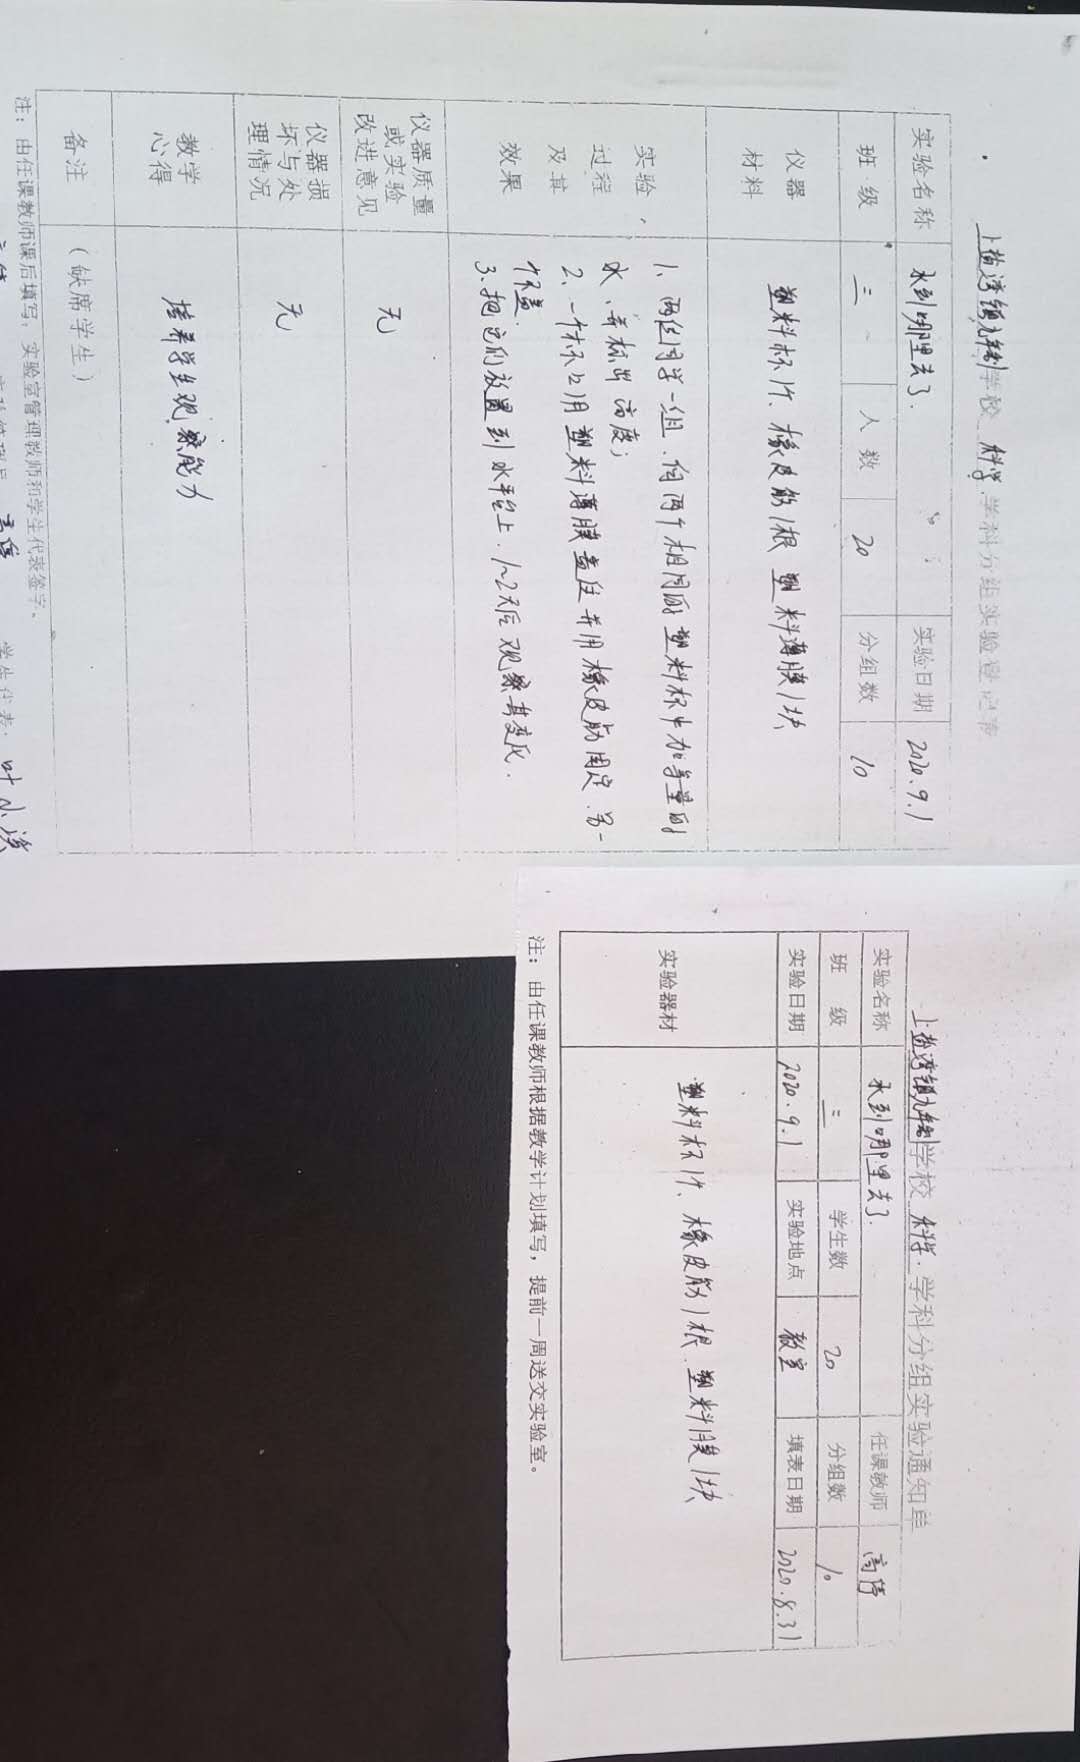 上盐湾镇九年制学校 科学 学科分组实验登记表
实验名称 水到哪里去了. 实验日期 2020.9.1
班 级 三 人 数 20 分组数 10
仪器
材料
塑料杯1个、橡皮筋1根 塑料薄膜1块
实验
过程
及其
效果
1、两位同学一组.向两个相同的塑料杯中加等量的
水、并标出高度;
2、一个杯口用塑料薄膜盖住并用橡皮筋固定.另一
个不盖
3、把它们放置到水平台上.1~2天后观察其变化.
仪器质量
或实验
改进意见
无
仪器损
坏与处
理情况
无
教学
心得
培养学生观察能力
备注 (缺席学生)
注：由任课教师课后填写，实验室管理教师和学生代表签字。
学生代表: 叶小
上盐湾镇九年制学校 科学 学科分组实验通知单
实验名称 水到哪里去了. 任课教师 高伟
班 级 三 学生数 20 分组数 10
实验日期 2020.9.1 实验地点 教室 填表日期 2020.8.31
实验器材
塑料杯1个、橡皮筋1根.塑料膜1块
注：由任课教师根据教学计划填写，提前一周送交实验室。